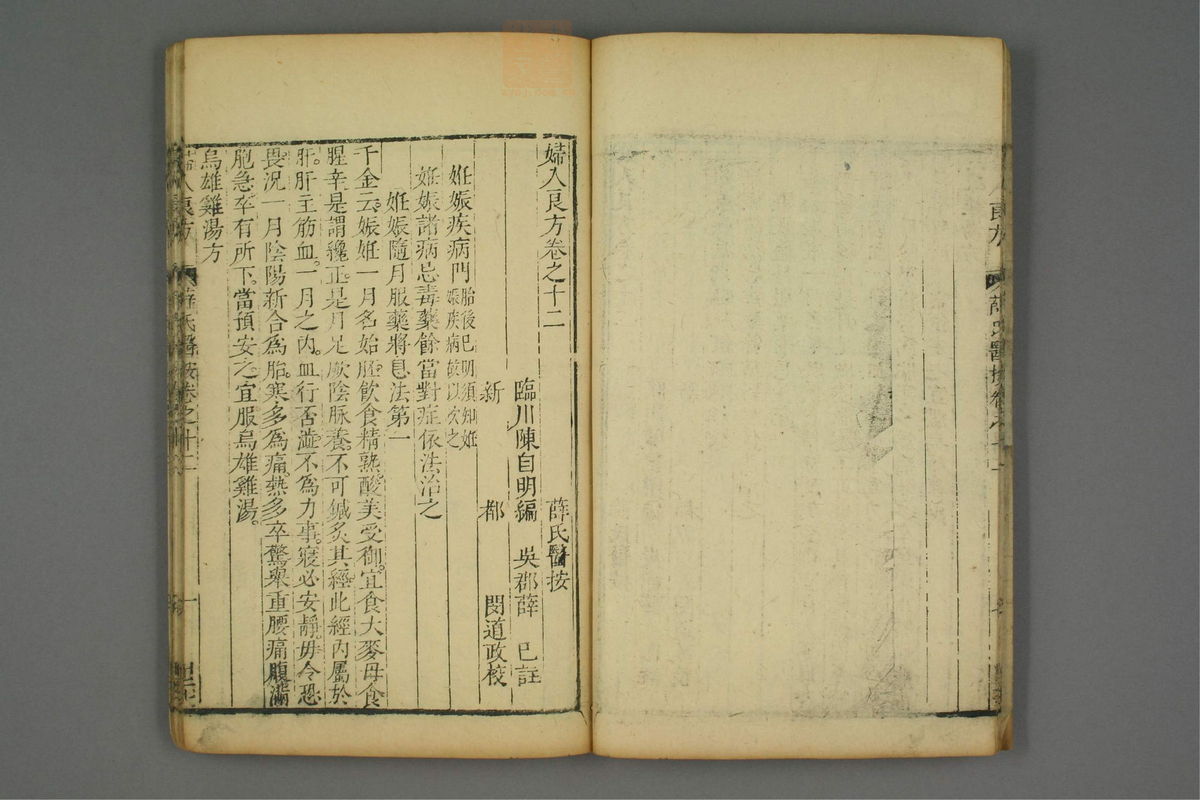 婦人良方卷之十二
薛氏醫按
臨川陳自明編　吳郡薛　已註
新　都　閔道政校
妊娠疾病門
胎後巳明須知妊
娠疾病故以次之
妊娠諸病忌毒藥餘當對症依法治之
妊娠隨月服藥將息法第一
千金云娠妊一月名始胚飲食精熟酸美受御宜食大麥毋食
腥辛是謂纔正是月足厥陰脉養不可鍼炙其經此經內屬於
肝肝主筋血一月之內血行否澁不為力事寢必安靜毋令恐
畏況一月陰陽新合為胎寒多為痛熱多卒驚舉重腰痛腹滿
胞急卒有所下當預安之宜服烏雄雞湯
烏雄雞湯方
婦人良方
薛氏醫按卷之十二
一
良方
薛氏醫按卷之十二